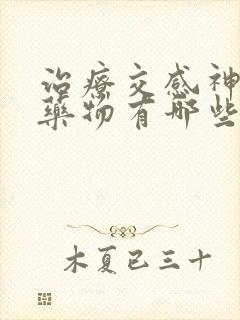 治療交感神
藥物有哪些
木夏已三十